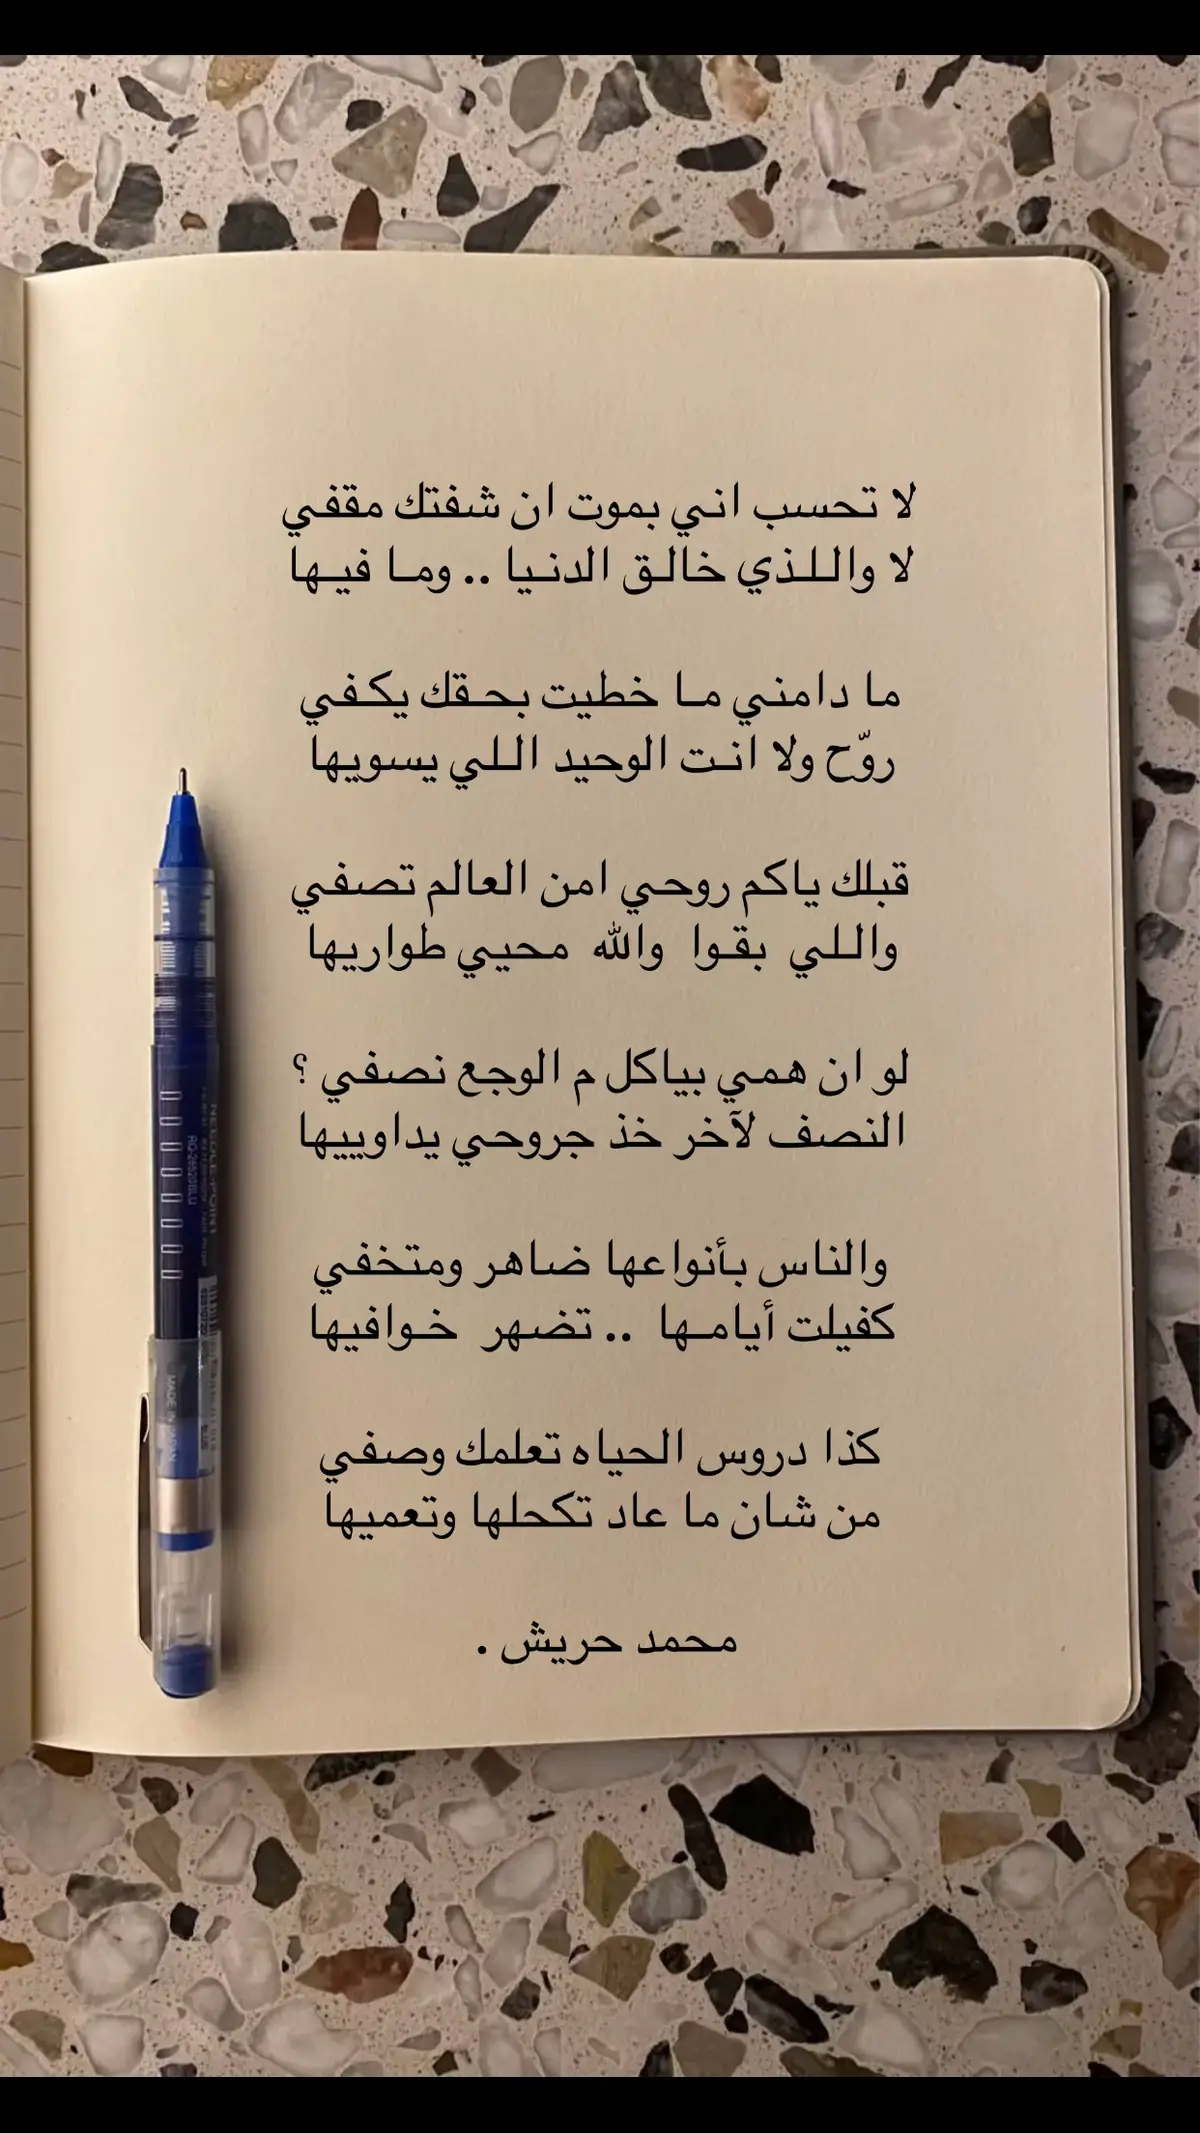 لا تحسب اني بموت ان شفتك مقفي
لا واللذي خالق الدنيا .. وما فيها
ما دامني ما خطيت بحقك يكفي
روّح ولا انت الوحيد اللي يسويها
قبلك ياكم روحي امن العالم تصفي
واللي بقوا والله محيي طواريها
لو ان همي بياكل م الوجع نصفي ؟
النصف لآخر خذ جروحي يداوييها
والناس بأنواعها ضاهر ومتخفي
كفيلت أيامها .. تضهر خوافيها
كذا دروس الحياه تعلمك وصفي
من شان ما عاد تكحلها وتعميها
محمد حريش .
NEEDLE-POINT